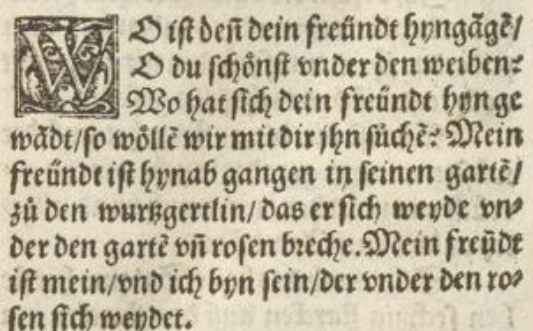 WO ist deñ dein freündt hyngãgẽ/
O du schönst vnder den weiben?
Wo hat sich dein freündt hyn ge
wãdt/so wöllẽ wir mit dir jhn sůchẽ? Mein
freündt ist hynab gangen in seinen gartẽ/
zů den wurtzgertlin/ das er sich weyde vn⸗
der den gartẽ vñ rosen breche. Mein freũdt
ist mein/vnd ich byn sein/der vnder den ro⸗
sen sich weydet.